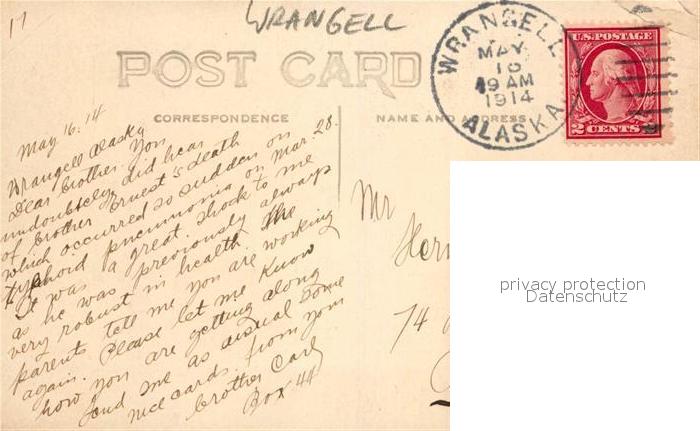 17
WRANGELL
POST CARD
CORRESPONDENCE
NAME AND ADDRESS
WRANGELL
MAY
16
9 AM
1914
ALASKA
U.S. POSTAGE
2 CENTS 2
May 16. 14
Wrangell Alaska
Dear brother. You
undoubtely did hear
of brother Ernest's death
which occurred so sudden on
typhoid pneumonia on Mar. 28.
It was a great shock to me
as he was previously always
very robust in health. The
parents tell me you are working
again. Please let me know
how you are getting along
send me as usual some
nice cards. from your
brother Carl
Box 44
Mr
74
privacy protection
Datenschutz